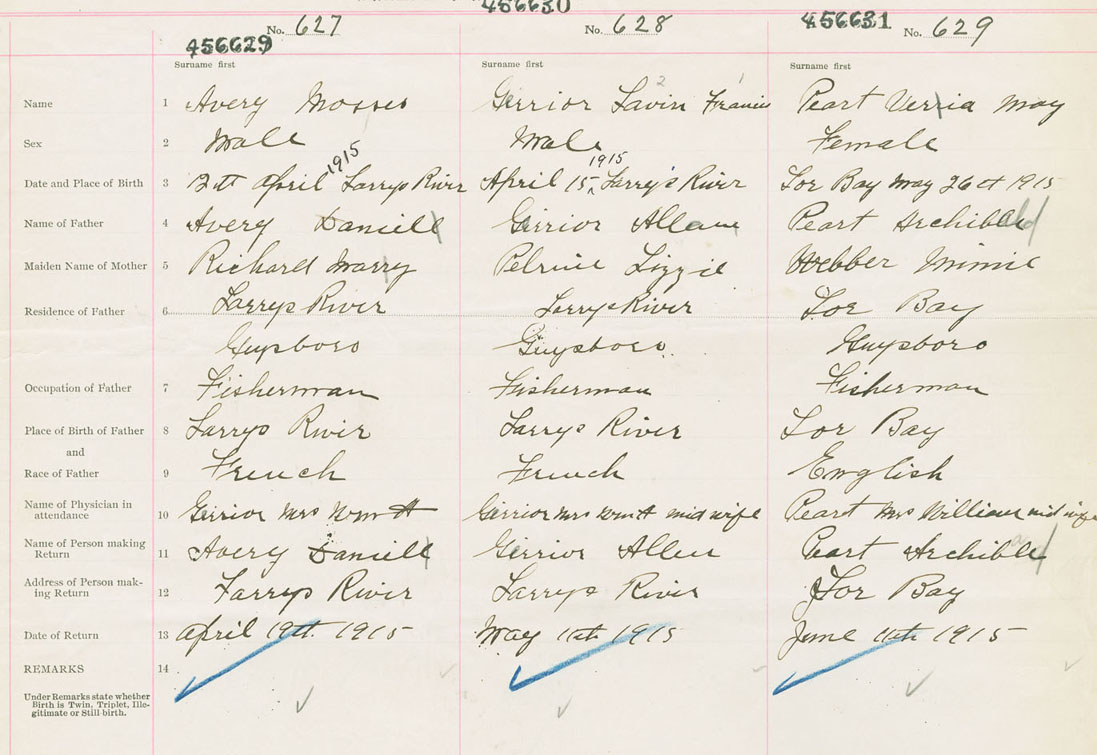 456629 No. 627 456630 No. 628 456631 No. 629
Surname first Surname first Surname first
Name 1 Avery Mosses Gerrior Lavin 2 Francis 1 Peart Vernia May
Sex 2 Male Male Female
Date and Place of Birth 3 12th April 1915 Larrys River April 15 1915 Larry's River Tor Bay May 26th 1915
Name of Father 4 Avery Daniell Gerrior Allan Peart Archibald
Maiden Name of Mother 5 Richard Marry Pelrine Lizzie Webber Minnie
Residence of Father 6 Larrys River Larrys River Tor Bay
Guysboro Guysboro. Guysboro
Occupation of Father 7 Fisherman Fisherman Fisherman
Place of Birth of Father 8 Larrys River Larrys River Tor Bay
and
Race of Father 9 French French English
Name of Physician in
attendance 10 Gerrior Mrs Wm H Gerrior Mrs Wm H mid wife Peart Mrs William mid wife
Name of Person making
Return 11 Avery Daniell Gerrior Allen Peart Archibld
Address of Person mak-
ing Return 12 Larrys River Larrys River Tor Bay
Date of Return 13 April 19th. 1915 May 11th 1915 June 11th 1915
REMARKS 14
Under Remarks state whether
Birth is Twin, Triplet, Ille-
gitimate or Still-birth.